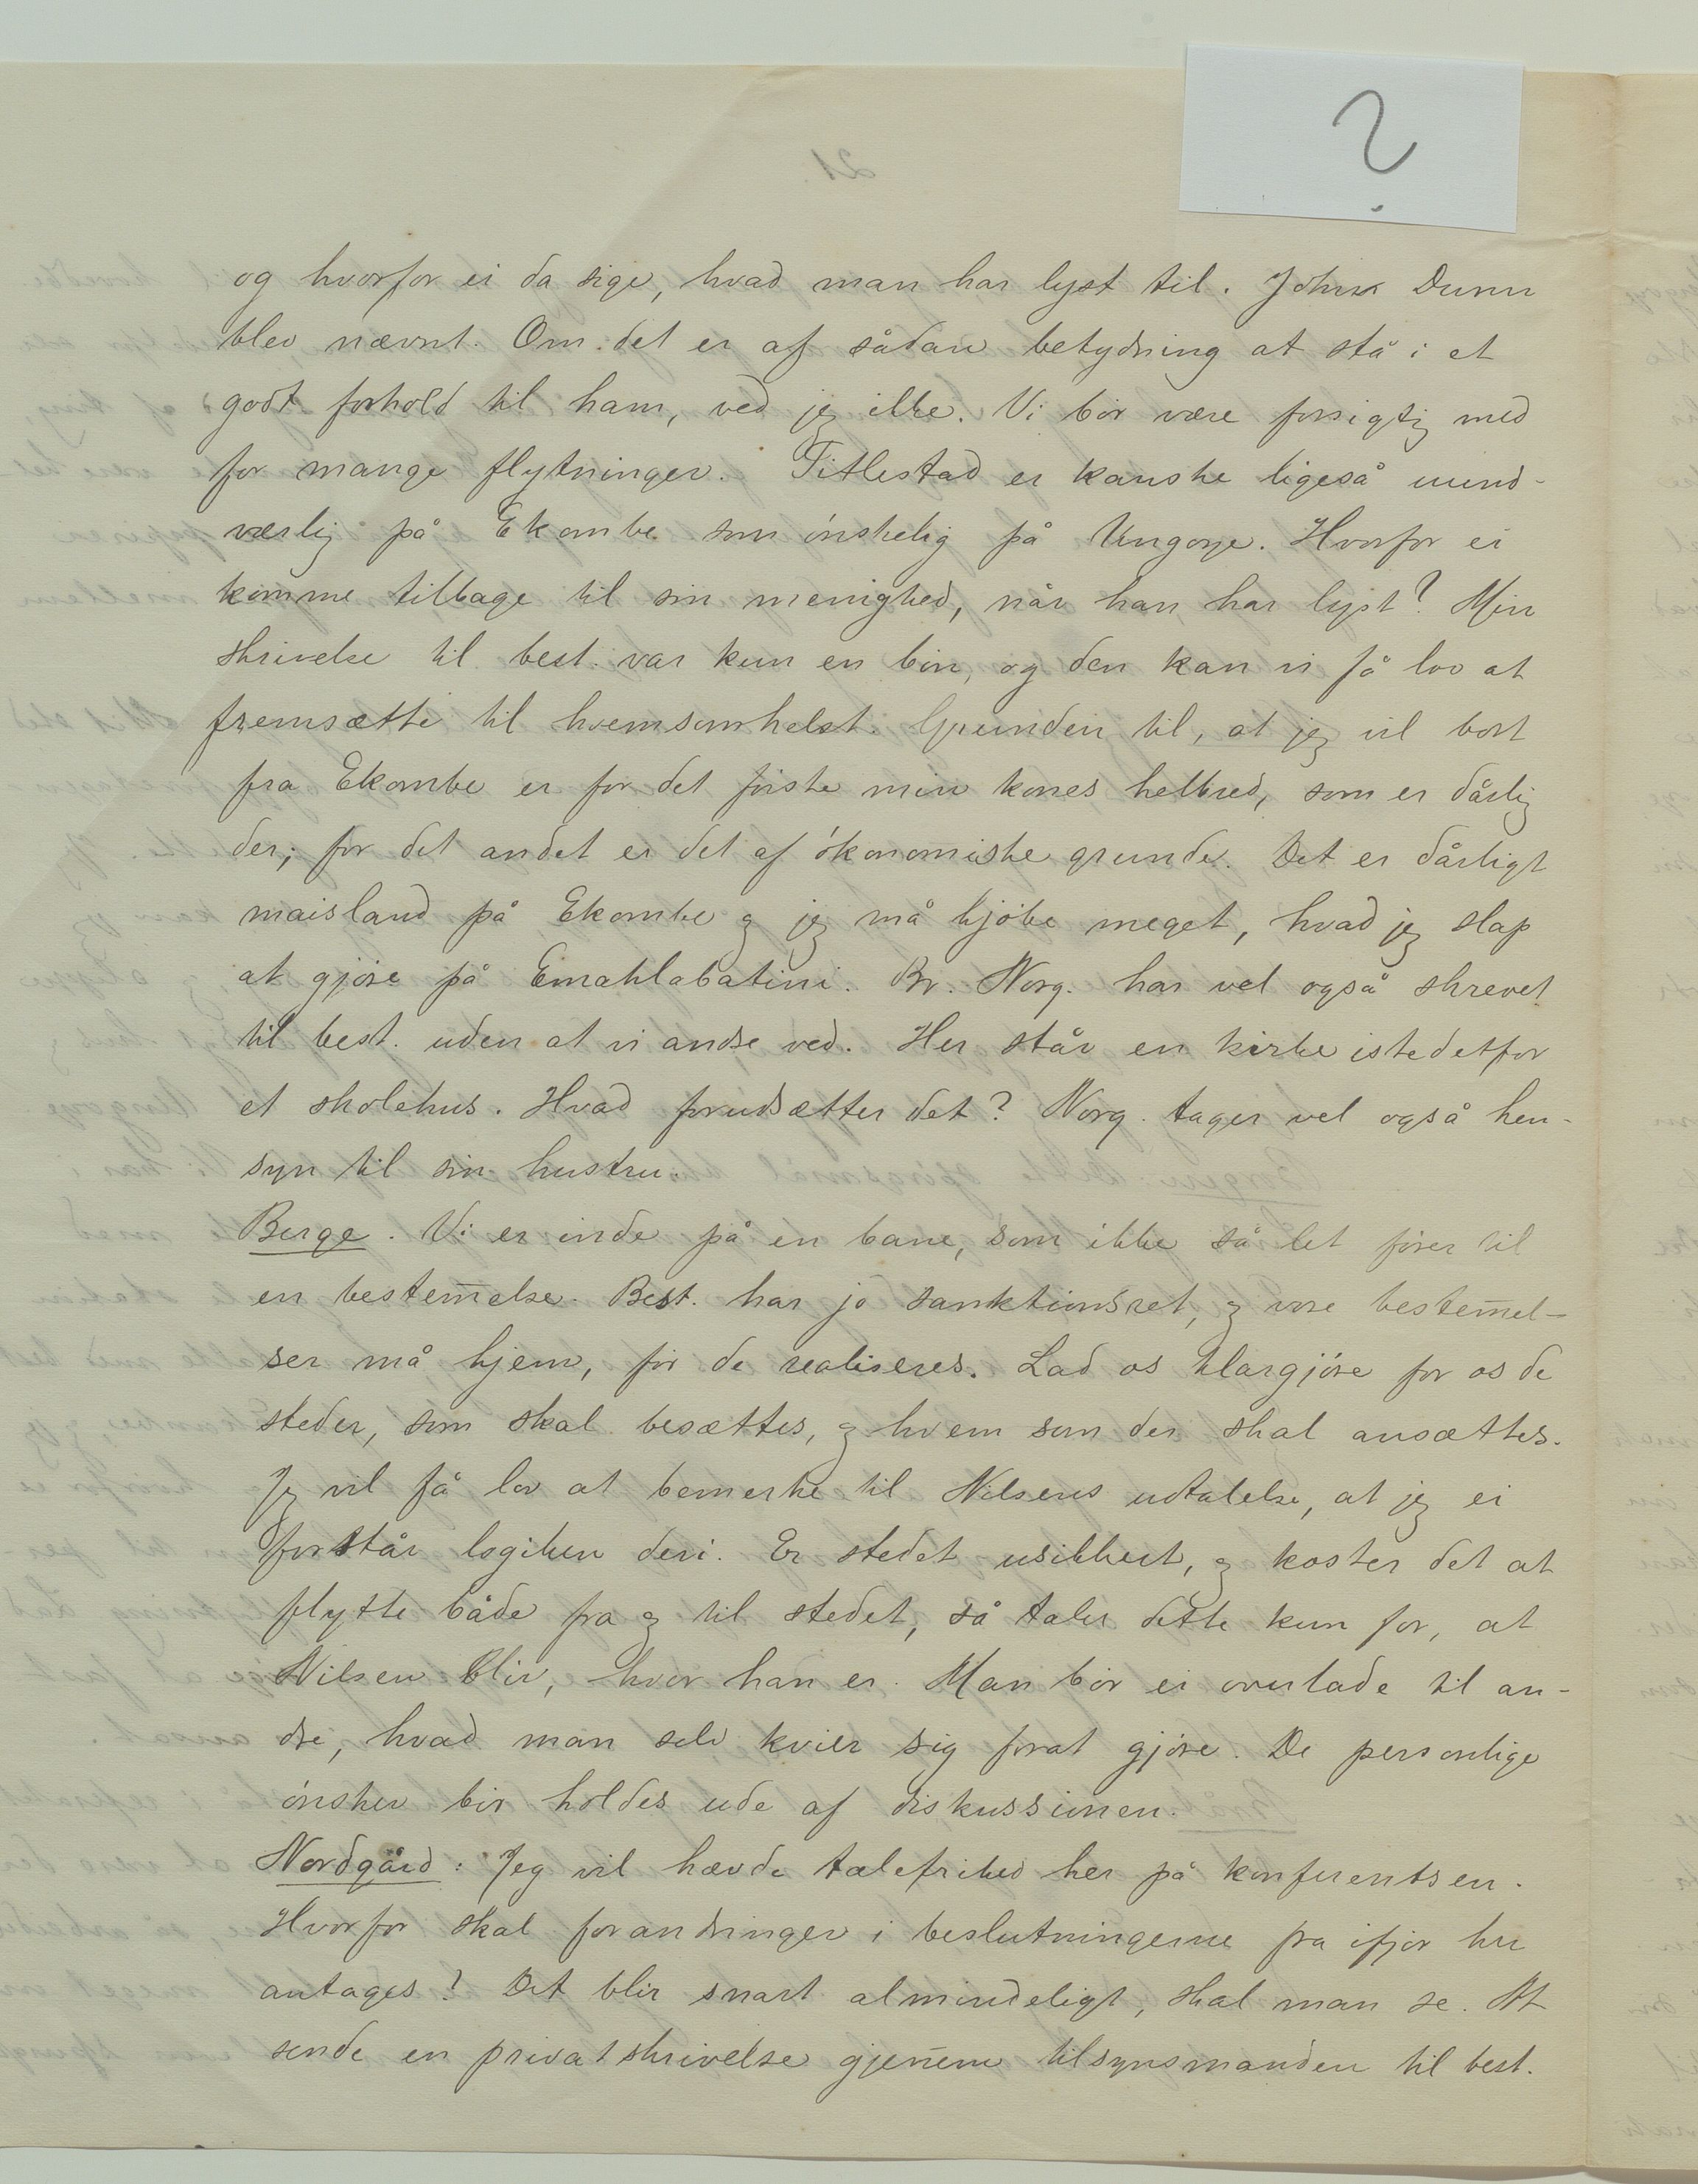 ?
og hvorfor ei da sige, hvad man har lyst til. John Dunn
blev nævnt. Om det er af sådan betydning at stå i et
godt forhold til ham, ved jeg ikke. Vi bör være forsigtig med
for mange flytninger. Titlestad er kanske ligeså uund-
værlig på Ekombe som önskelig på Ungoye. Hvorfor ei
komme tilbage til sin menighed, når han har lyst? Min
skrivelse til best. var kun en bön, og den kan vi få lov at
fremsætte til hvemsomhelst. Grunden til, at jeg vil bort
fra Ekombe er for det förste min kones helbred, som er dårlig
der; for det andet er det af ökonomiske grunde. Det er dårligt
maisland på Ekombe og jeg må kjöbe meget, hvad jeg slap
at gjöre på Emahlabatini. Br. Norg. har vel også skrevet
til best. uden at vi andre ved. Her står en kirke istedetfor
et skolehus. Hvad forudsætter det? Norg. tager vel også hen-
syn til sin hustru.
Berge. Vi er inde på en bane, som ikke så let förer til
en bestem̄else. Best. har jo sanktionsret, og vore bestem̄el-
ser må hjem, för de realiseres. Lad os klargjöre for os de
steder, som skal besættes, og hvem som der skal ansættes.
Jeg vil få lov at bemerke til Nilsens udtalelse, at jeg ei
forstår logiken deri. Er stedet usikkert, og koster det at
flytte både fra og til stedet, så taler dette kun for, at
Nilsen blir, hvor han er. Man bör ei overlade til an-
dre, hvad man selv kvier sig forat gjöre. De personlige
önsker bör holdes ude af diskussionen.
Nordgård: Jeg vil hævde talefrihed her på konferentsen.
Hvorfor skal forandringer i beslutningerne fra ifjor her
antages? Det blir snart almindeligt, skal man se. At
sende en privatskrivelse gjen̄em tilsynsmanden til best.